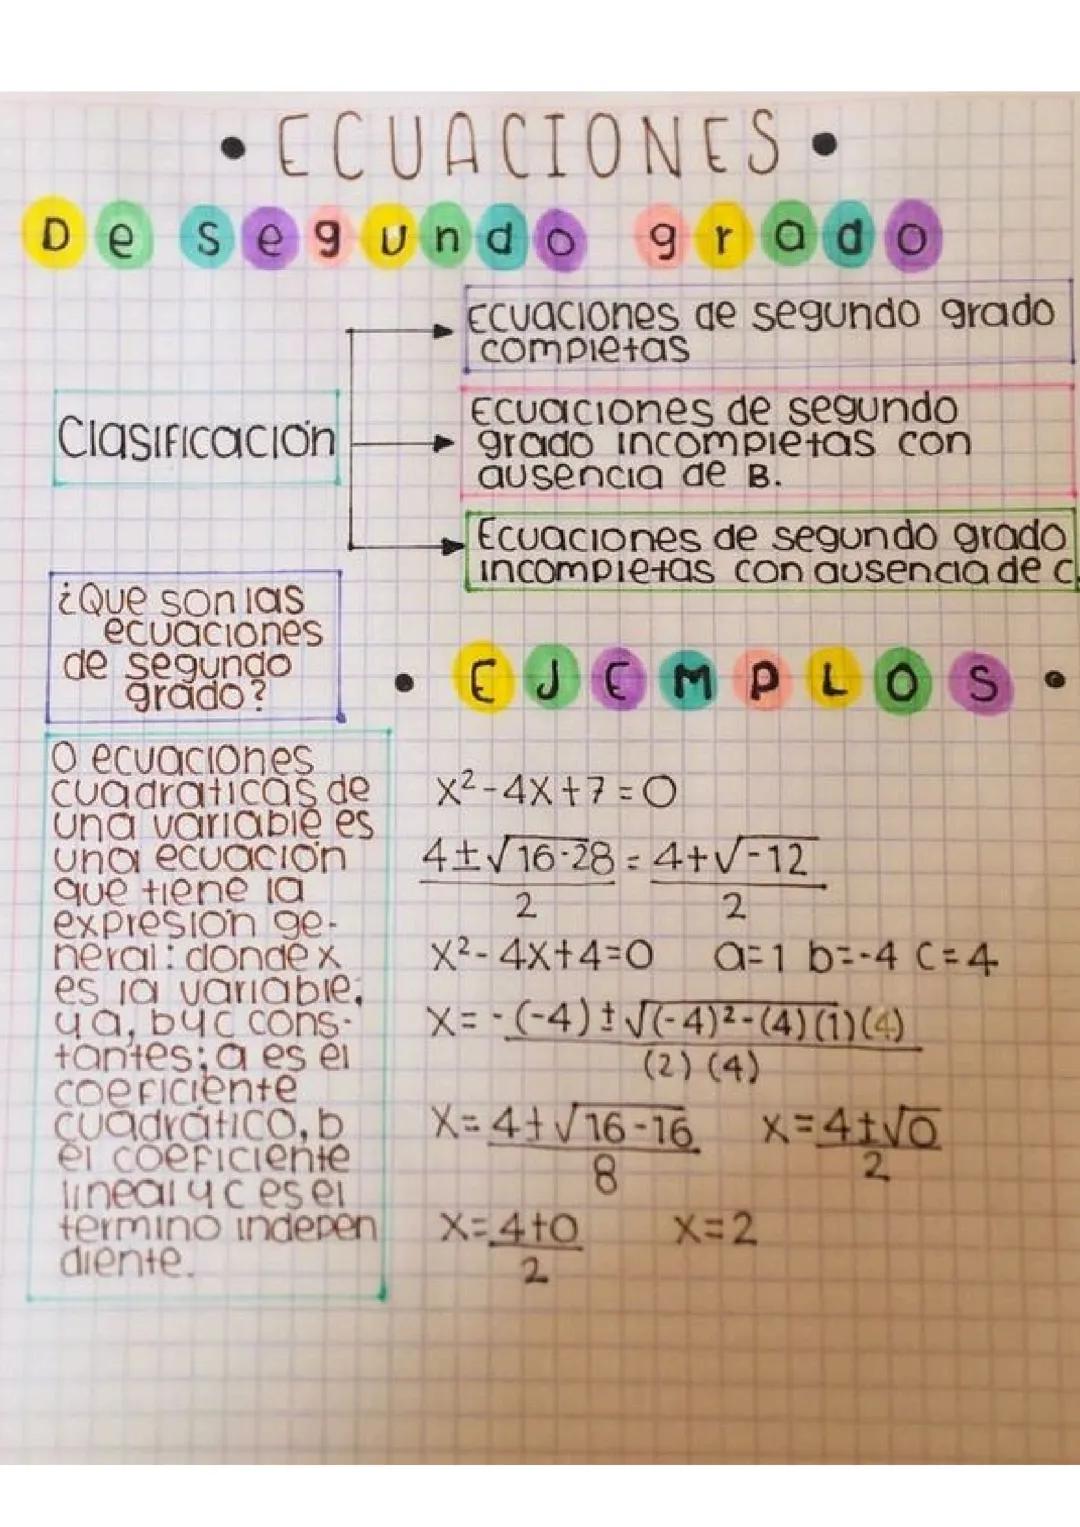 • ECUACIONES •
De segundo grado
Ecuaciones de segundo grado
completas
Clasificación
Ecuaciones de segundo
grado incompletas con
ausencia de B.
Ecuaciones de segundo grado
incompletas con ausencia de C.
¿Que son las
ecuaciones
de segundo
grado?
O ecuaciones
cuadraticas de
una variable es
una ecuación
que tiene la
expresión ge-
neral: donde x
es la variable,
y a, b y c cons-
tantes; a es el
coeficiente
cuadrático, b
el coeficiente
lineal y c es el
termino indepen
diente.
• EJEMPLOS •
x²-4x+7=0
4±√16-28 = 4+√-12
2 2
x²-4x+4=0 a=1 b=-4 c=4
x= -(-4)±√(-4)²-(4)(1)(4)
(2)(4)
x=4±√16-16 x=4±√0
8 2
x=4+0 x=2
2